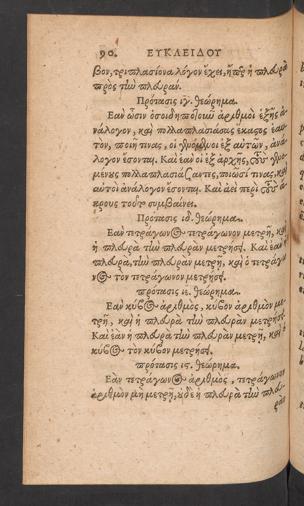 90. ΕΥΚΛΕΙΔΟΥ
βον, τριπλασίονα λόγον ἔχει, ἤπερ ἡ πλευρὰ
πρὸς τὴν πλευράν.
Πρότασις ιγ. θεώρημα.
Εὰν ὦσιν ὁσοιδηποτοιοῦν ἀριθμοὶ ἑξῆς ἀ-
νάλογον, καὶ πολλαπλασιάσας ἕκαστος ἑαυ-
τὸν, ποιῇ τινας, οἱ γενόμενοι ἐξ αὐτῶν, ἀνά-
λογον ἔσονται. Καὶ ἐὰν οἱ ἐξ ἀρχῆς, τοὺς γενο-
μένους πολλαπλασιάζαντες, ποιῶσί τινας, καὶ
αὐτοὶ ἀνάλογον ἔσονται. Καὶ ἀεὶ περὶ τοὺς ἄ-
κρους τοῦτο συμβαίνει.
Πρότασις ιδ. θεώρημα.
Εὰν τετράγωνος τετράγωνον μετρῇ, καὶ
ἡ πλευρὰ τὴν πλευρὰν μετρήσει. Καὶ ἐὰν ἡ
πλευρὰ, τὴν πλευρὰν μετρῇ, καὶ ὁ τετράγω-
νος τὸν τετράγωνον μετρήσει.
πρότασις ιε. θεώρημα.
Εὰν κύβος ἀριθμὸς, κύβον ἀριθμὸν με-
τρῇ, καὶ ἡ πλευρὰ τὴν πλευρὰν μετρήσει.
Καὶ ἐὰν ἡ πλευρὰ τὴν πλευρὰν μετρῇ, καὶ ὁ
κύβος τὸν κύβον μετρήσει.
πρότασις ις. θεώρημα.
Εὰν τετράγωνος ἀριθμὸς, τετράγωνον
ἀριθμὸν μὴ μετρῇ, οὐδὲ ἡ πλευρὰ τὴν πλευ-
ρὰν